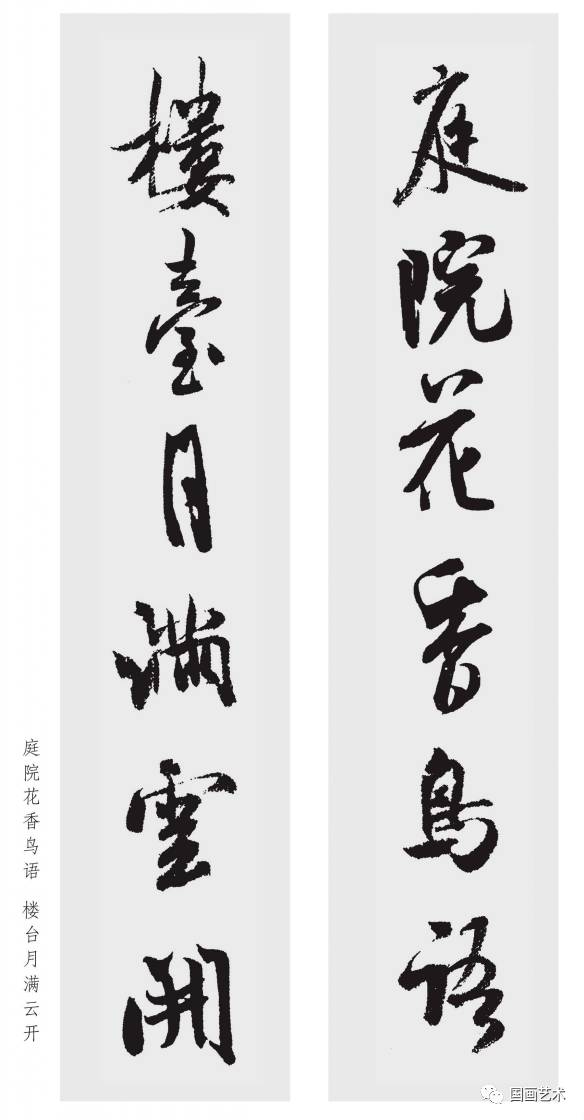 庭院花香鳥語
樓臺月滿雲開
庭院花香鸟语 楼台月满云开
国画艺术